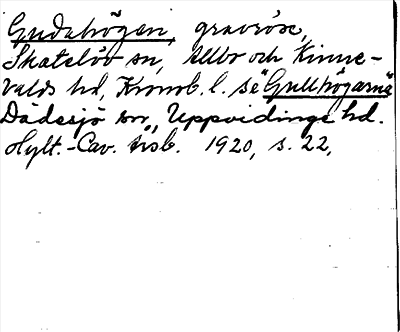 Gudahögen, gravröse,
Skatelöv sn, Allbo och Kinne-
valds hd, Kronob. l. se "Gullhögarna"
Dädesjö sn, Uppvidinge hd.
Hylt.-Cav. årsb. 1920, s. 22,